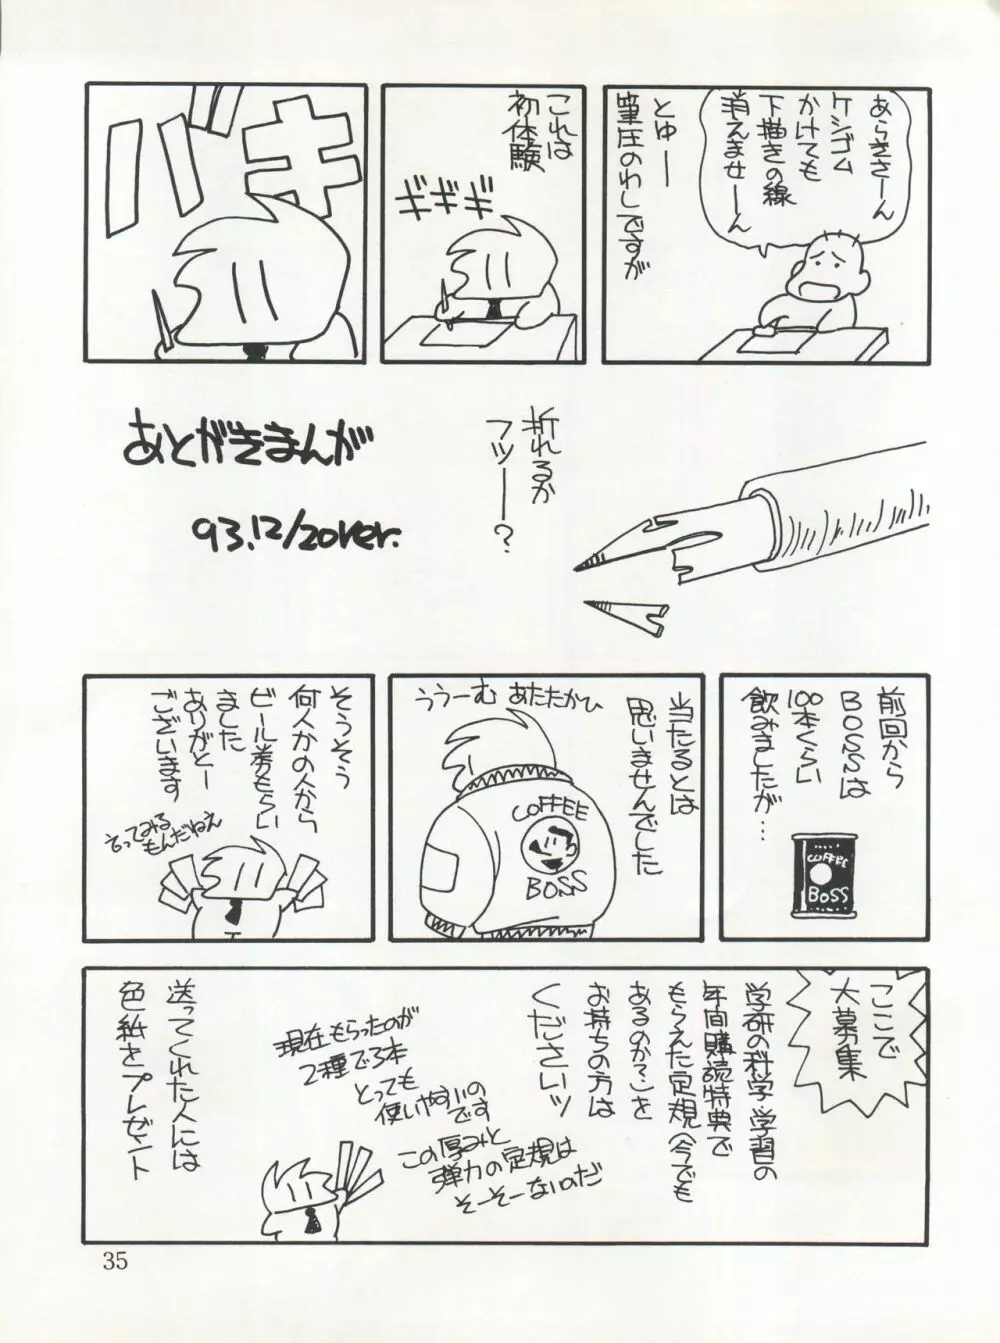 あらささーん
ケシゴム
かけても
下描きの線
消えませーん
とゆー
筆圧のわしですが
これは
初体験
ギギギ
バキ
折れるか
フツー?
あとがきまんが
93.12/20ver.
前回から
BOSSは
100本くらい
飲みましたが…
COFFEE
BOSS
当たるとは
思いませんでした
ううーむ あたたかひ
COFFEE
BOSS
そうそう
何人かの人から
ビール券もらい
ました
ありがとー
ございます
言ってみる
もんだねえ
ここで
大募集
学研の科学学習の
年間購読特典で
もらえた定規(今でも
あるのか?)を
お持ちの方は
くださいッ
現在もらったのが
2種で3本
とっても
使いやすいの
です
この厚みと
弾力の定規は
そーそーないのだ
送ってくれた人には
色紙をプレゼント
35